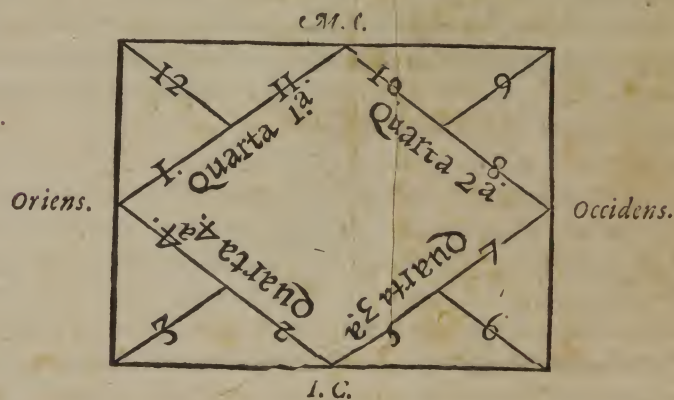 M. C.
12
11.
10.
9
I.
Quarta 1.ª
Quarta 2ª.
8.
Oriens.
Occidens.
4.
Quarta 4.ª
Quarta 3.ª
7
3
2
5
6
I. C.